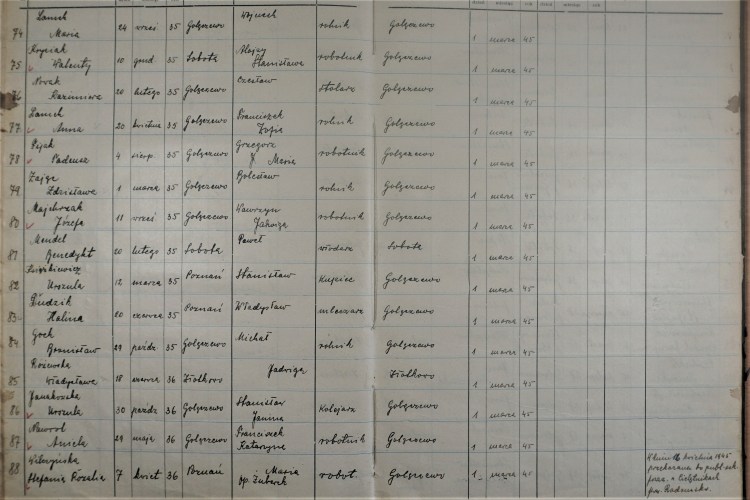 74 Lamch Maria 24 wrześ 35 Gołęczewo Wojciech rolnik Gołęczewo 1 marca 45
75 Walenty 10 grud 35 Sobota Alojzy Stanisława robotnik Gołęczewo 1 marca 45
76 Nowak Kazimiera 20 lutego 35 Gołęczewo Czesław stolarz Gołęczewo 1 marca 45
77 Lamch Anna 20 kwietnia 35 Gołęczewo Franciszek Zofia rolnik Gołęczewo 1 marca 45
78 Pająk Tadeusz 4 sierp 35 Gołęczewo Grzegorz Maria robotnik Gołęczewo 1 marca 45
79 Zając Zdzisława 1 marca 35 Gołęczewo Bolesław rolnik Gołęczewo 1 marca 45
80 Majchrzak Józefa 18 wrześ 35 Gołęczewo Wawrzyn Jadwiga robotnik Gołęczewo 1 marca 45
81 Mendel Benedykt 20 lutego 35 Sobota Paweł włodarz Sobota 1 marca 45
82 Urszula 12 marca 35 Poznań Stanisław Kupiec Gołęczewo 1 marca 45
83 Dudzik Halina 20 czerwca 35 Poznań Władysław mleczarz Gołęczewo 1 marca 45
84 Bronisław 29 paźdz 35 Gołęczewo Michał rolnik Gołęczewo 1 marca 45
85 Władysława 18 czerwca 36 Ziołkowo Jadwiga Ziołkowo 1 marca 45
86 Janakowska Urszula 30 paźdz 36 Gołęczewo Stanisław Janina Kolejarz Gołęczewo 1 marca 45
87 Nawrot Aniela 29 maja 36 Gołęczewo Franciszek Katarzyna robotnik Gołęczewo 1 marca 45
88 Wilczyńska Stefania Rozalia 7 kwiet 36 Poznań Maria robot. Gołęczewo 1 marca 45 kwietnia 1945
przekazana do publ szk
pow. Radomsko